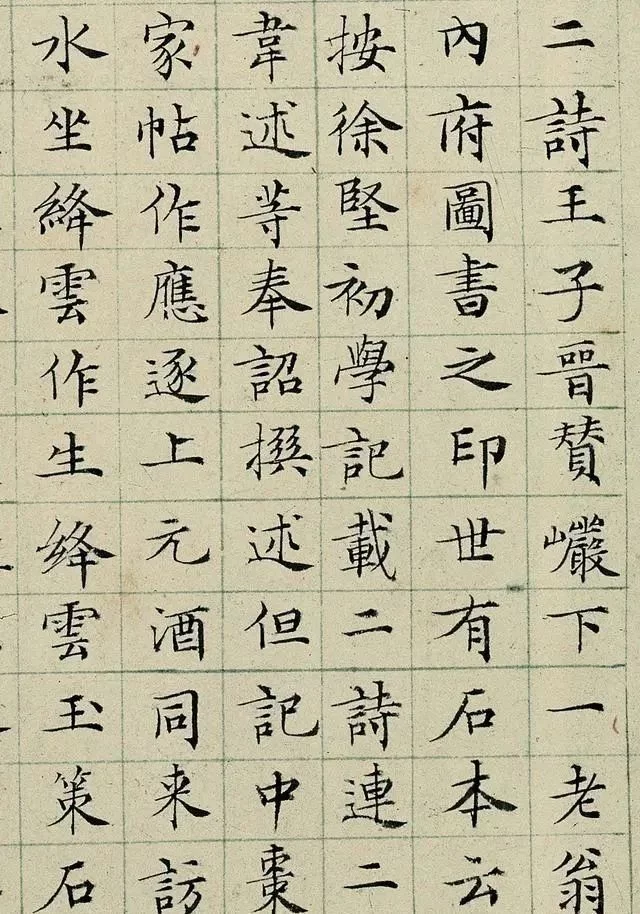 二詩王子晉贊巖下一老翁
內府圖書之印世有石本云
按徐堅初學記載二詩連二
韋述等奉詔撰述但記中棗
家帖作應逐上元酒同来訪
水坐絳雲作生絳雲玉策石